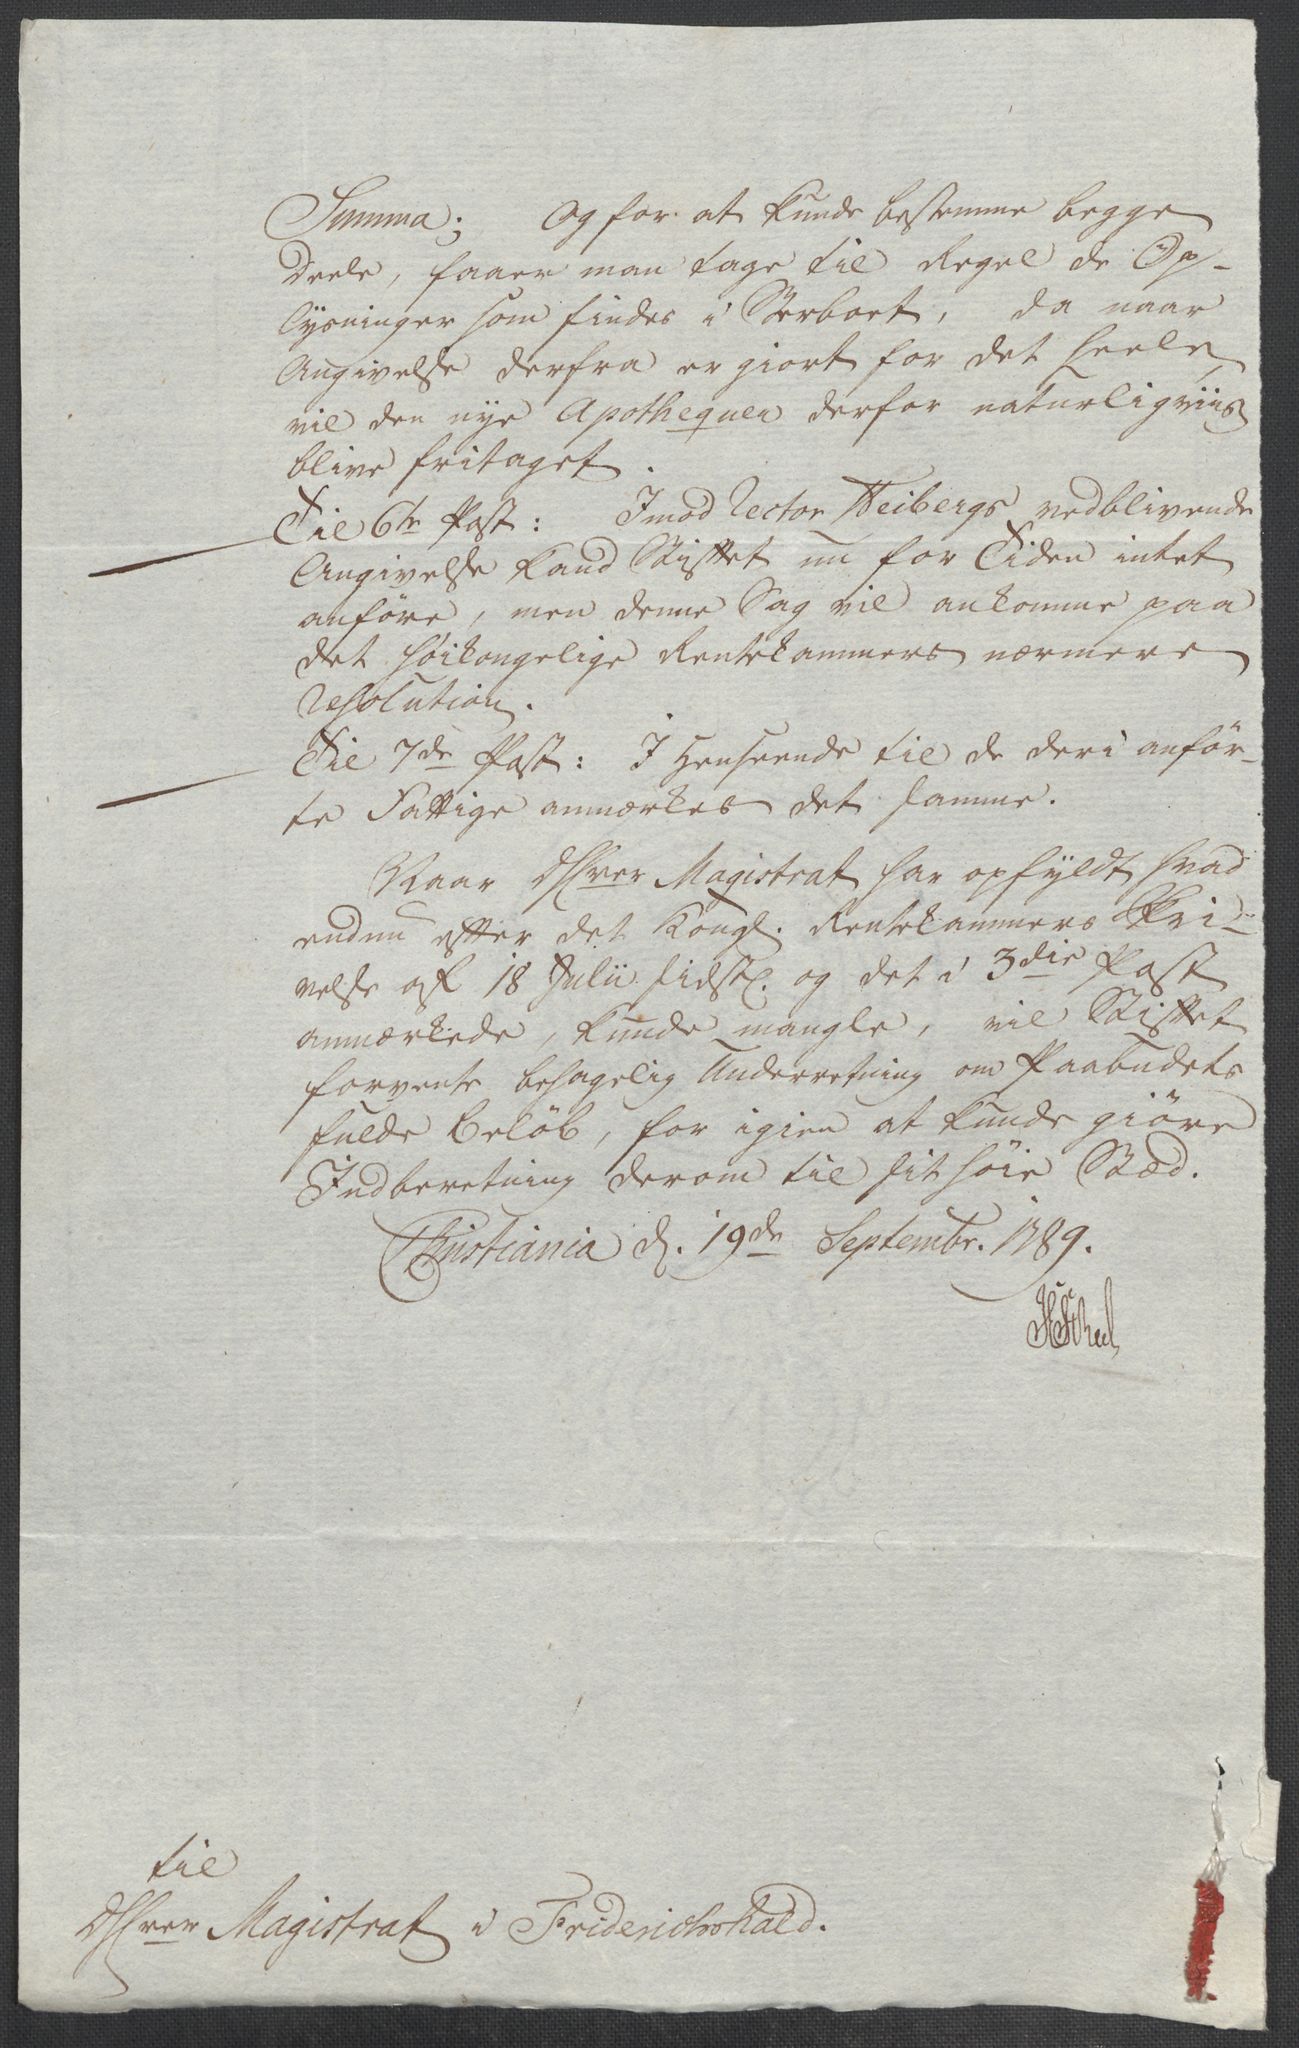 Summa; Og for at kunde bestemme begge
Deele, faaer man tage til Regel de Op-
lysninger som findes i Sterboet, da naar
Angivelse derfra er giort for det heele,
vil den nye Apothequer derfor naturligviis
blive fritaget.
Til 6te Post: Imod Rector Heibergs vedblivende
Angivelse kand Stiftet nu for Tiden intet
anføre, men denne Sag vil ankomme paa
det høikongelige Rentekammers nærmere
Resolution.
Til 7de Post: I Henseende til de deri anfør-
te Fattige anmærkes det samme.
Naar HHrer Magistrat har opfyldt hvad
endnu efter det Kongl. Rentekammers Skri-
velse af 18 Julii sidstl. og det i 3die Post
anmærkede, kunde mangle, vil Stiftet
forvente behagelig Underretning om Paabudets
fulde Beløb, for igien at kunde giøre
Indberetning derom til sit høie Stæd.
Christiania d. 19de Septembr. 1789.
til
HHrer Magistrat i Friderichshald.